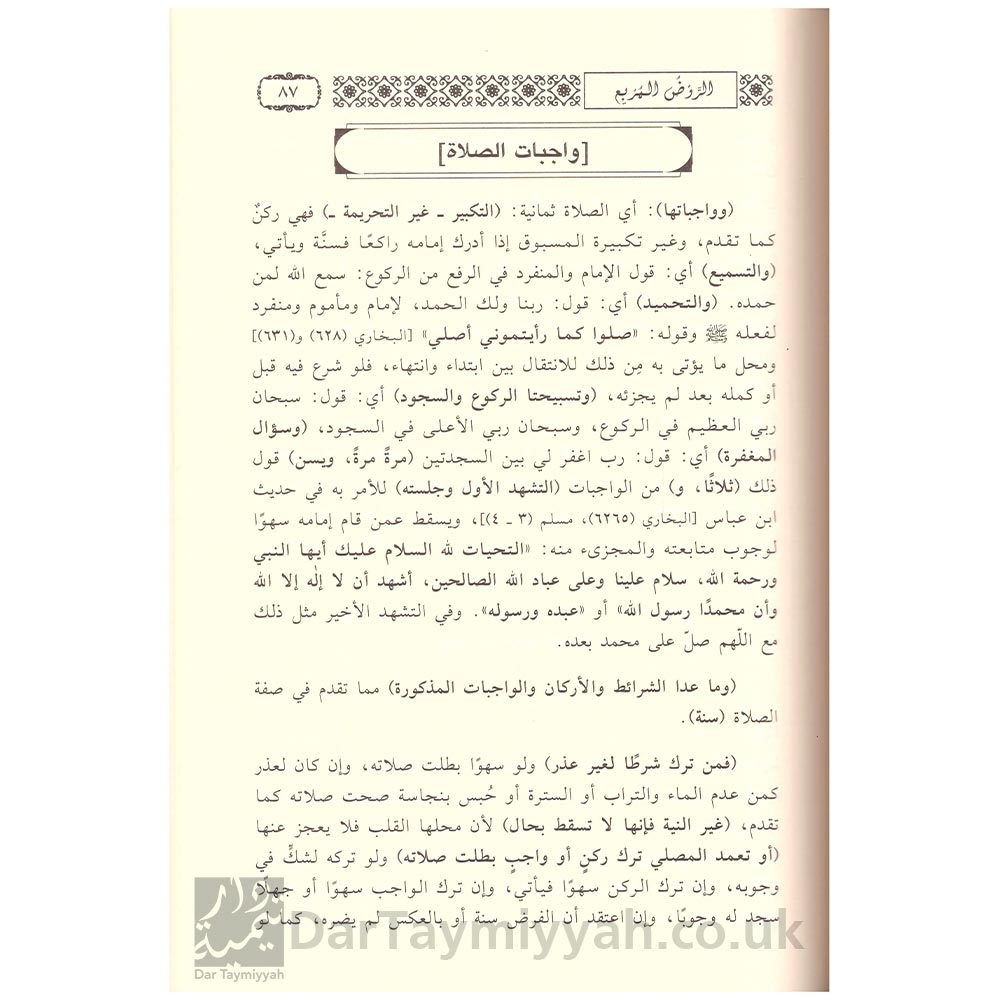 الرَّوْضُ المُرْبِع
٨٧
[واجبات الصلاة]
(وواجباتها): أي الصلاة ثمانية: (التكبير ـ غير التحريمة ـ) فهي ركنٌ
كما تقدم، وغير تكبيرة المسبوق إذا أدرك إمامه راكعًا فسنَّة ويأتي،
(والتسميع) أي: قول الإمام والمنفرد في الرفع من الركوع: سمع الله لمن
حمده. (والتحميد) أي: قول: ربنا ولك الحمد، لإمام ومأموم ومنفرد
لفعله ﷺ وقوله: «صلوا كما رأيتموني أصلي» [البخاري (٦٢٨) و(٦٣١)]
ومحل ما يؤتى به مِن ذلك للانتقال بين ابتداء وانتهاء، فلو شرع فيه قبل
أو كمله بعد لم يجزئه، (وتسبيحتا الركوع والسجود) أي: قول: سبحان
ربي العظيم في الركوع، وسبحان ربي الأعلى في السجود، (وسؤال
المغفرة) أي: قول: رب اغفر لي بين السجدتين (مرةً مرةً، ويسن) قول
ذلك (ثلاثًا، و) من الواجبات (التشهد الأول وجلسته) للأمر به في حديث
ابن عباس [البخاري (٦٢٦٥)، مسلم (٣ ـ ٤)]، ويسقط عمن قام إمامه سهوًا
لوجوب متابعته والمجزىء منه: «التحيات لله السلام عليك أيها النبي
ورحمة الله، سلام علينا وعلى عباد الله الصالحين، أشهد أن لا إلٰه إلا الله
وأن محمدًا رسول الله» أو «عبده ورسوله». وفي التشهد الأخير مثل ذلك
مع اللّهم صلّ على محمد بعده.
(وما عدا الشرائط والأركان والواجبات المذكورة) مما تقدم في صفة
الصلاة (سنة).
(فمن ترك شرطًا لغير عذر) ولو سهوًا بطلت صلاته، وإن كان لعذر
كمن عدم الماء والتراب أو السترة أو حُبس بنجاسة صحت صلاته كما
تقدم، (غير النية فإنها لا تسقط بحال) لأن محلها القلب فلا يعجز عنها
(أو تعمد المصلي ترك ركنٍ أو واجبٍ بطلت صلاته) ولو تركه لشكٍّ في
وجوبه، وإن ترك الركن سهوًا فيأتي، وإن ترك الواجب سهوًا أو جهلًا
سجد له وجوبًا، وإن اعتقد أن الفرض سنة أو بالعكس لم يضره، كما لو
دار تيمية
Dar Taymiyyah
DarTaymiyyah.co.uk